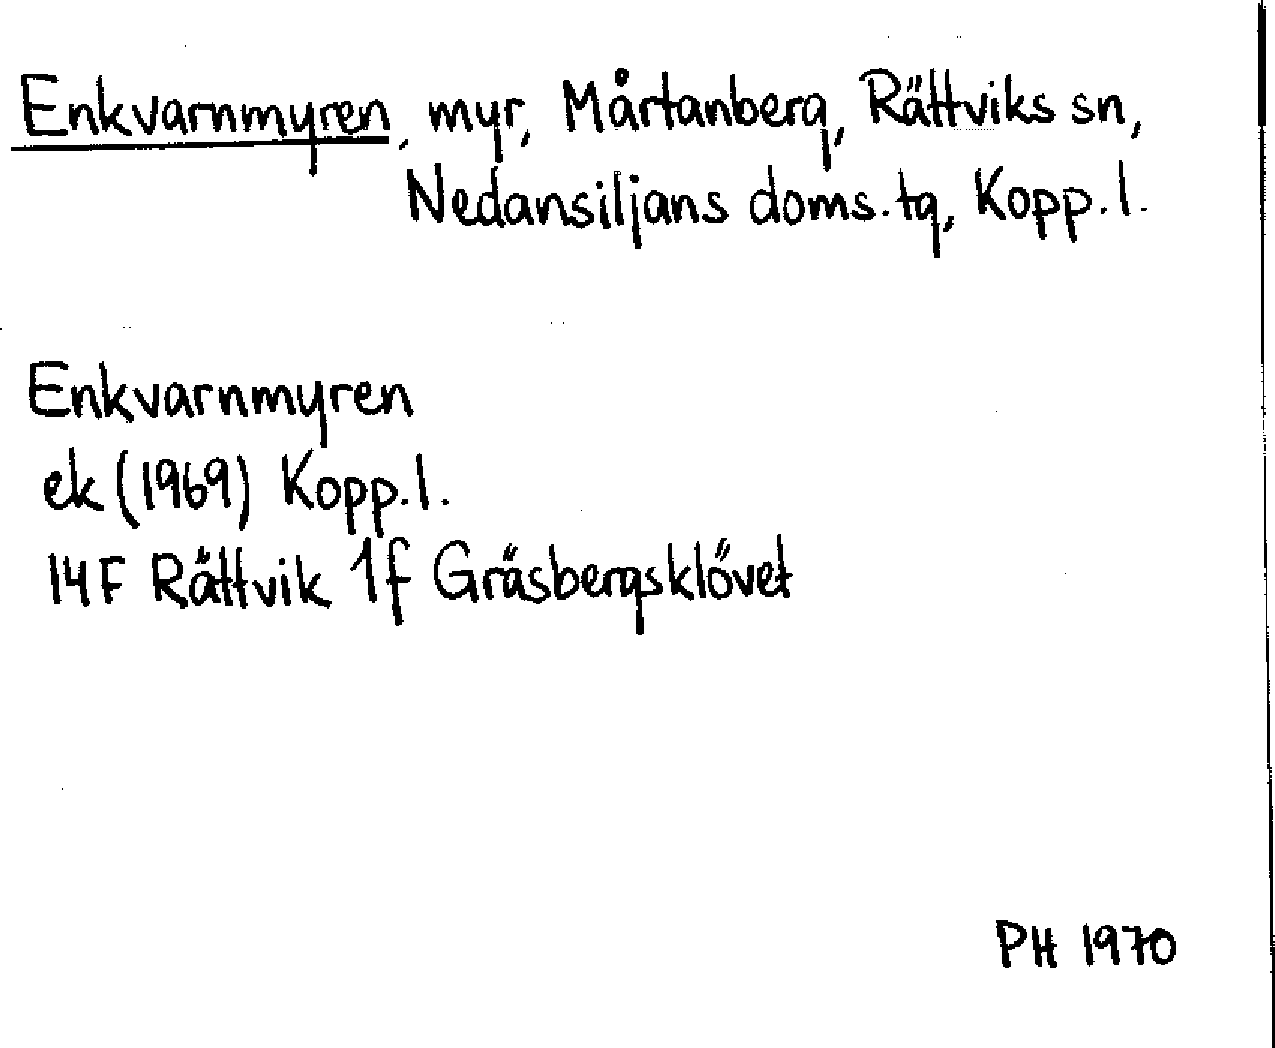 Enkvarnmyren, myr, Mårtanberg, Rättviks sn,
Nedansiljans doms.tg, Kopp.l.
Enkvarnmyren
ek (1969) Kopp.l.
14F Rättvik 1f Gräsbergsklövet
PH 1970